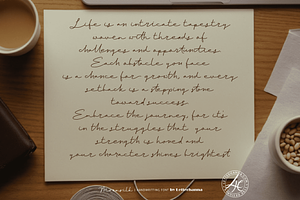 Life is an intricate tapestry
woven with threads of
challenges and opportunities
Each obstacle you face
is a chance for growth, and every
setback is a stepping stone
toward success
Embrace the journey, for it's
in the struggles that your
strength is honed and
your character shines brightest
HANDWRITTING FONT by Letterhanna